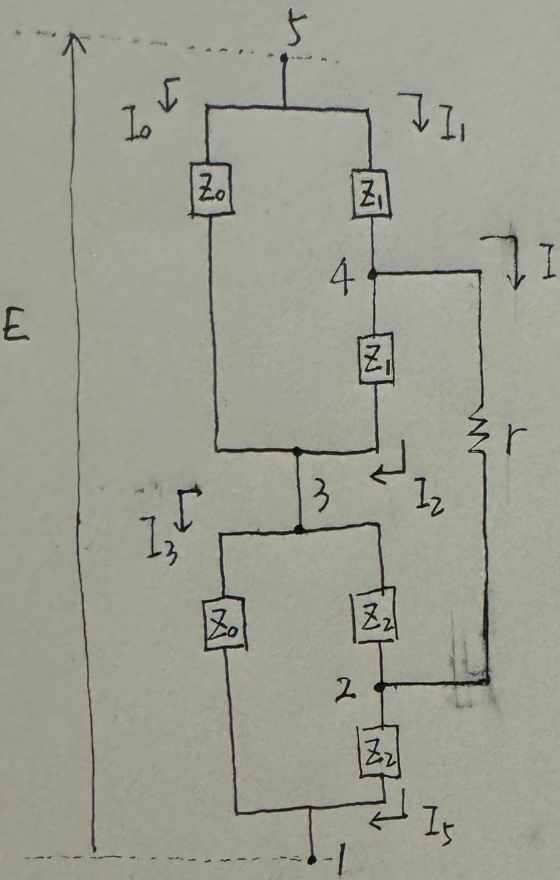 5
I₀
I₁
Z₀
Z₁
4
I
E
Z₁
r
3
I₂
I₃
Z₀
Z₂
2
Z₂
I₅
1